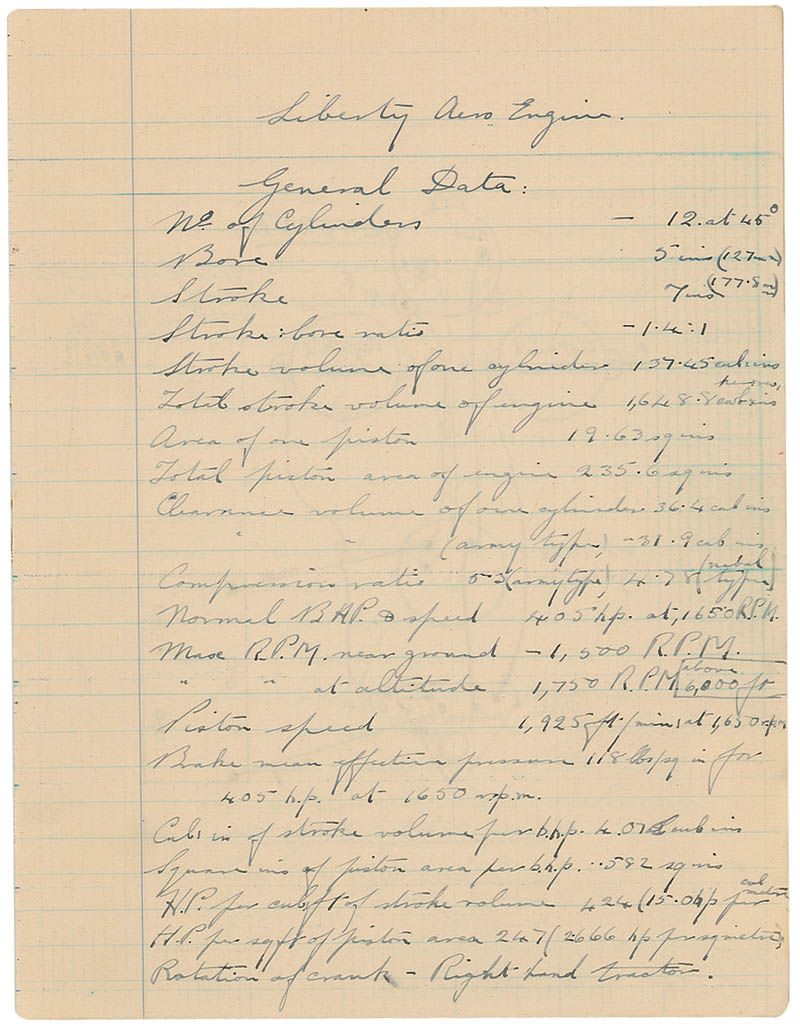 Liberty Aero Engine.
General Data:
No. of Cylinders - 12. at 45°
Bore 5 ins (127 mm)
Stroke 7 ins (177.8 mm)
Stroke : bore ratio - 1.4 : 1
Stroke volume of one cylinder 137.45 cub ins
Total stroke volume of engine 1,648.8 cub ins
Area of one piston 19.63 sq ins
Total piston area of engine 235.6 sq ins
Clearance volume of one cylinder 36.4 cub ins
" " (army type) - 31.9 cub ins
Compression ratio 5.3 (army type) 4.78 (type)
Normal B.H.P. & speed 405 hp. at 1,650 R.P.M.
Max R.P.M. near ground - 1,500 R.P.M.
" " at altitude 1,750 R.P.M. above 6,000 ft
Piston speed 1,925 ft/min; at 1,650 r.p.m
Brake mean effective pressure 118 lbs/sq in for
405 h.p. at 1650 r.p.m.
Cub: in of stroke volume per b.h.p. 4.07 cub ins
Square ins of piston area per b.h.p. .582 sq ins
H.P. per cub ft of stroke volume 424 (15.0 h/p per cub metre
H.P. per sq ft of piston area 247 (2666 hp per sq metre)
Rotation of crank - Right hand tractor.